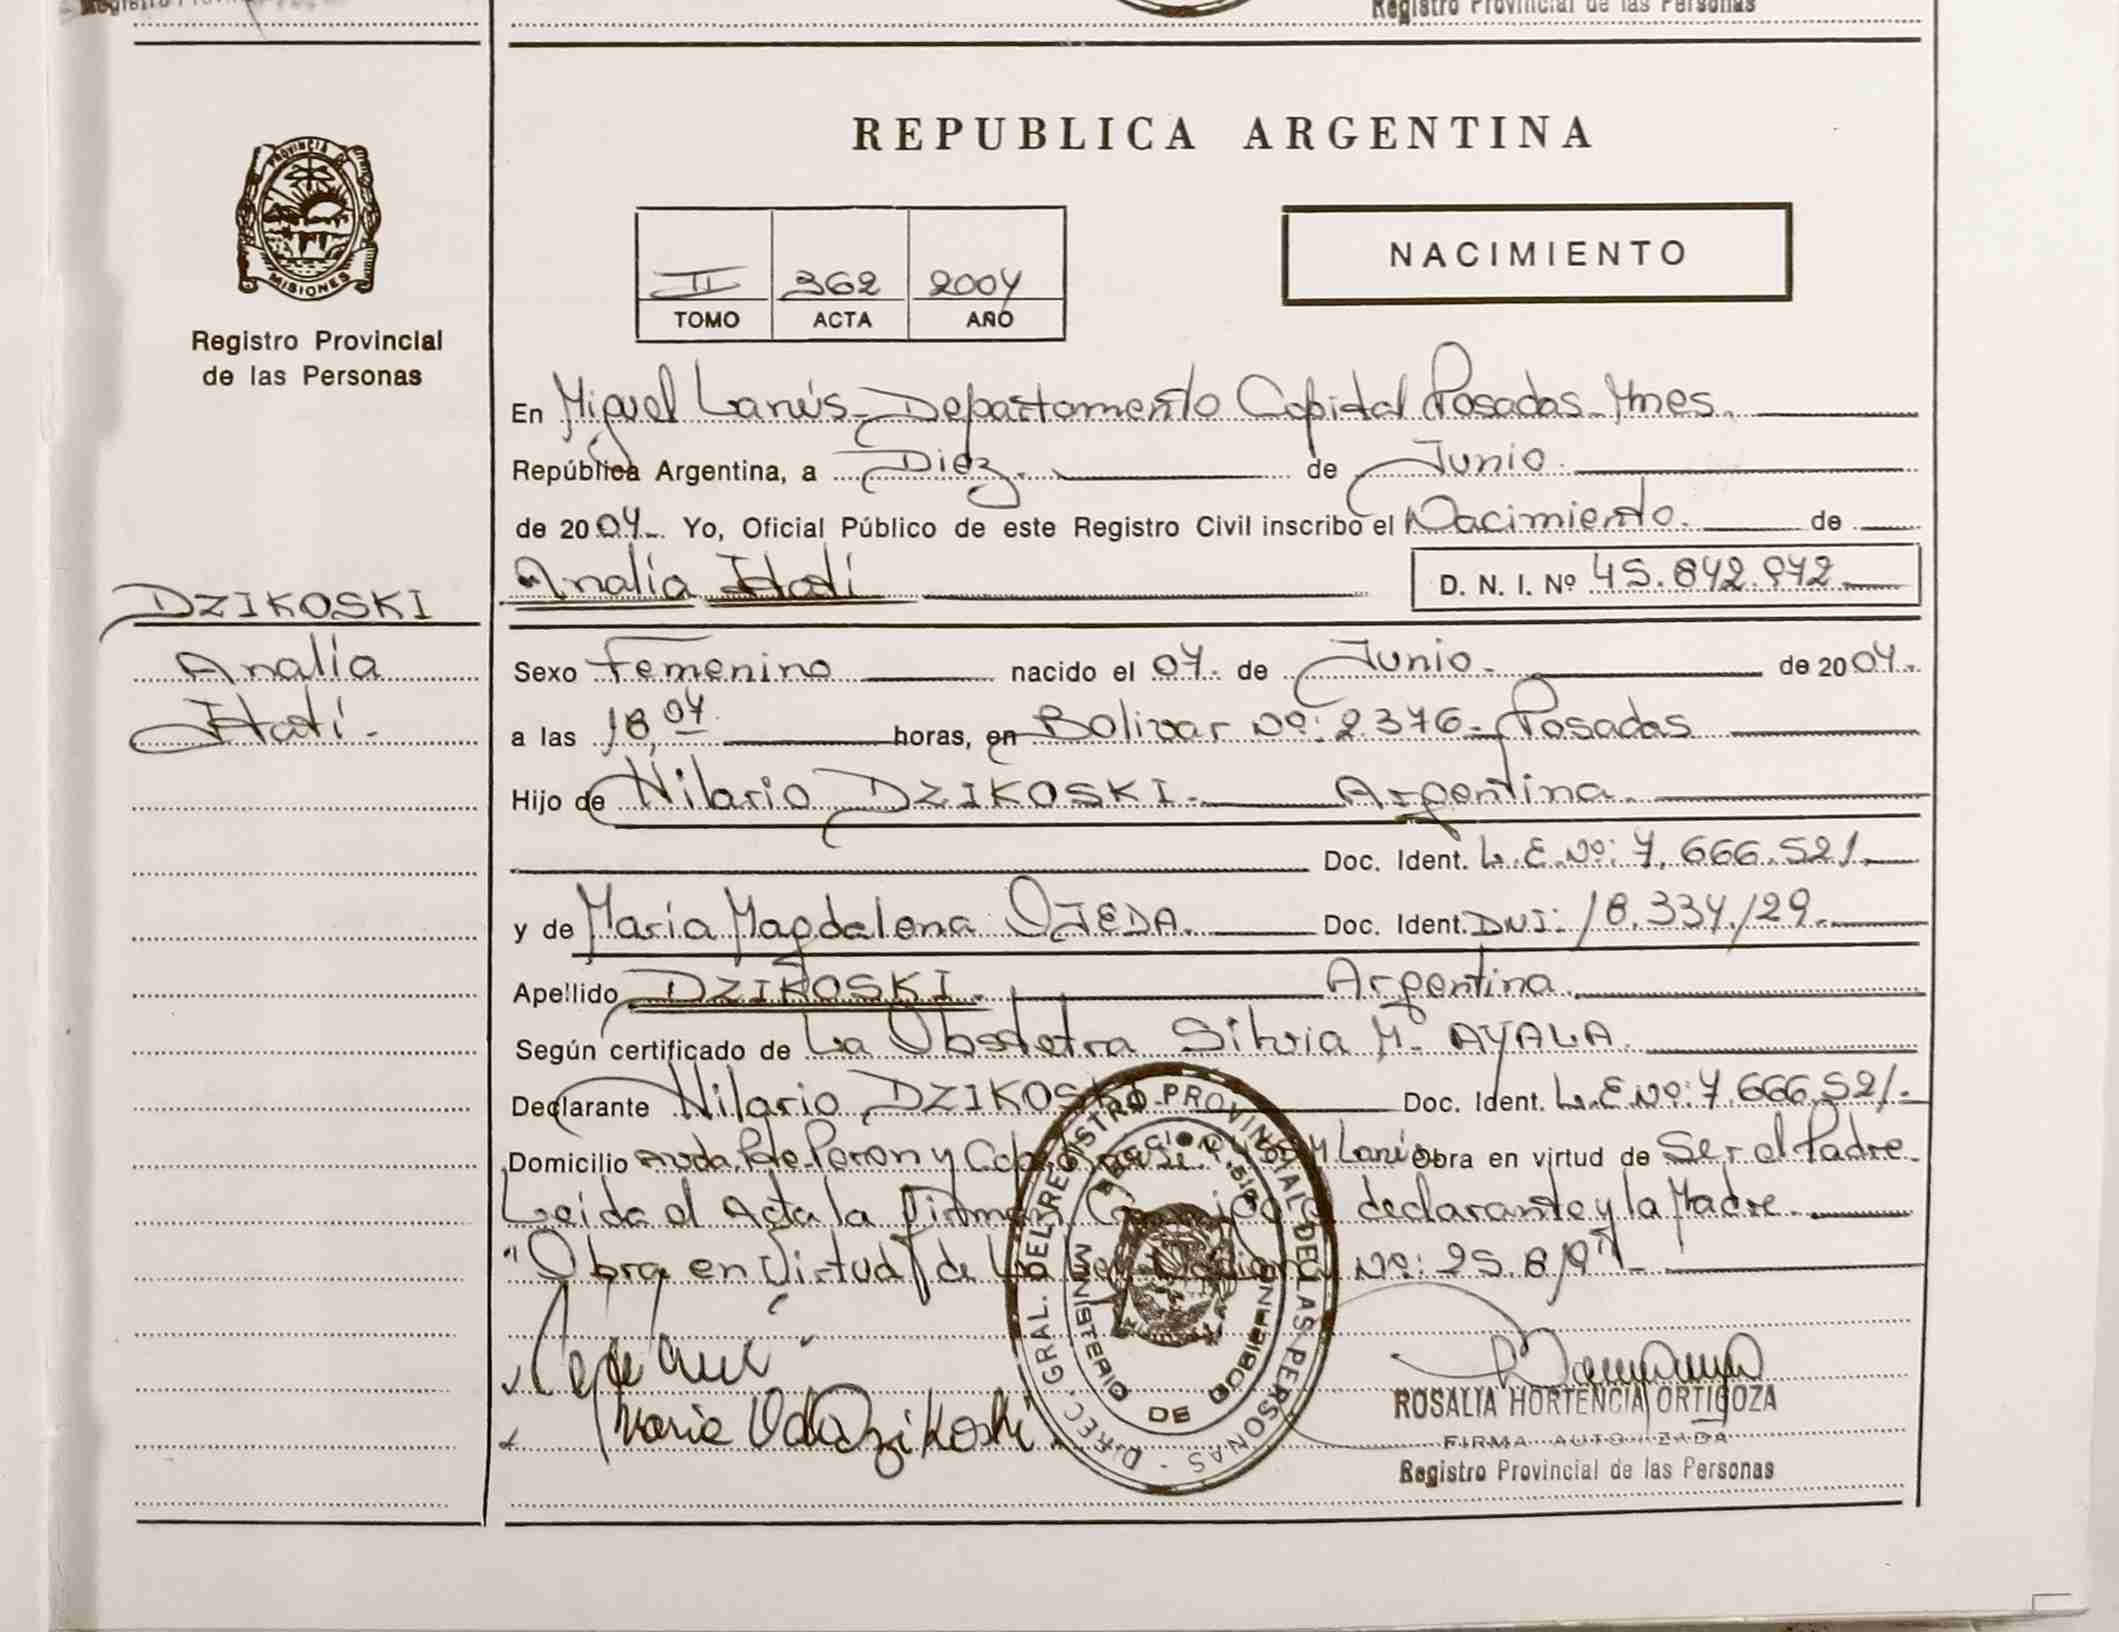 Registro Provincial de las Personas
REPUBLICA ARGENTINA
PROVINCIA DE
MISIONES
Registro Provincial
de las Personas
II 362 2004
TOMO ACTA AÑO
NACIMIENTO
En Miguel Lanús - Departamento Capital Posadas Mnes.
República Argentina, a Diez. de Junio.
de 2004. Yo, Oficial Público de este Registro Civil inscribo el Nacimiento. de
Analía Itatí D. N. I. Nº 45.842.942
DZIKOSKI
Analía
Itatí.
Sexo Femenino nacido el 04. de Junio. de 2004.
a las 18,04. horas, en Bolivar Nº: 2.376 - Posadas
Hijo de Hilario DZIKOSKI. Argentina.
Doc. Ident. L.E.Nº: 7.666.521.
y de María Magdalena OJEDA. Doc. Ident. DNI: 18.334.129.
Apellido DZIKOSKI. Argentina.
Según certificado de La Obstetra Silvia Mº AYALA.
Declarante Hilario DZIKOSKI Doc. Ident. L.E Nº: 7.666.521.
Domicilio Avda. Pte. Peron y Lanús Obra en virtud de Ser el Padre.
Leida el Acta la Firman declarante y la Madre.
"Obra en Virtud de Ley Nº: 25.819"
DIREC. GRAL. DEL REGISTRO PROVINCIAL DE LAS PERSONAS
MINISTERIO DE GOBIERNO
Dzikoski
ROSALIA HORTENCIA ORTIGOZA
FIRMA AUTORIZADA
Registro Provincial de las Personas